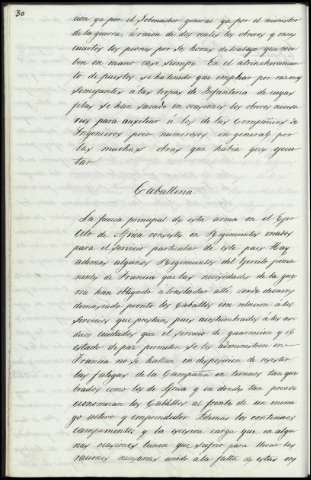 30
cion ya por el Gobernador general ya por el ministro
de la guerra, à razon de dos reales los obreros y cinco
cuartos los peones por de horas de trabajo que reciben
en mano casi siempre. En el atrincheramiento
de puestos se ha tenido que emplear por razones
semejantes à las tropas de Infanteria de cuyas
filas se han sacado en ocasiones los obreros necesarios
para auxiliar à los de las Compañias de
Ingenieros poco numerosas en general por
las muchas obras que habia que ejecutar
Caballeria
La fuerza principal de esta arma en el Ejercito
de Africa consiste en Regimientos creados
para el servicio particular de este pais. Hay
ademas algunos Regimientos del Ejercito permanente
de Francia que las necesidades de la guerra
han obligado à trasladar alli, siendo
demasiado pronto los Caballos con relacion à los
servicios que prestan, pues acostumbrados à los asiduos
cuidados que el servicio de guarnicion y el
estado de paz permiten se les administren en
Francia no se hallan en disposicion de resistir
las fatigas de la Campaña en terrenos tan quebrados
como los de Africa y en donde tan
los Caballos al frente de un enemigo
activo y emprendedor. Ademas los continuos
campamentos y la excesiva carga que en algunas
ocasiones tienen que sufrir para llevar las
raciones necesarias unido à la falta de estas en